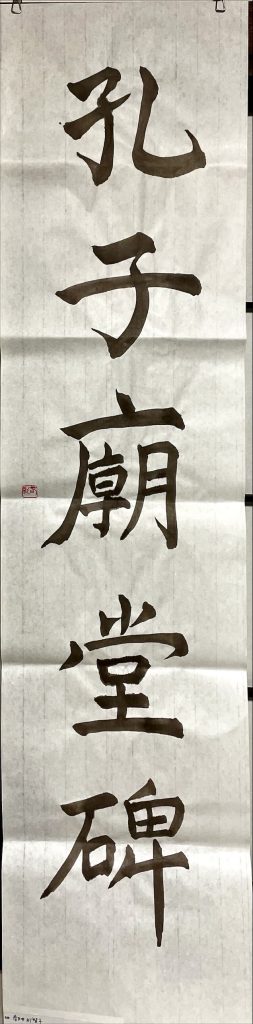 孔子廟堂碑